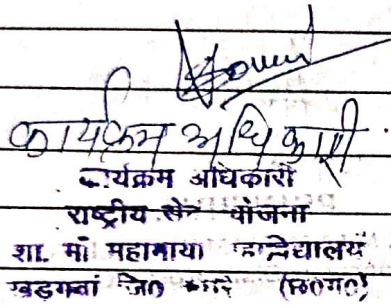 कार्यक्रम अधिकारी
कार्यक्रम अधिकारी
राष्ट्रीय सेवा योजना
शा. माँ महामाया महाविद्यालय
खड़गवां जिला (छ0ग0)